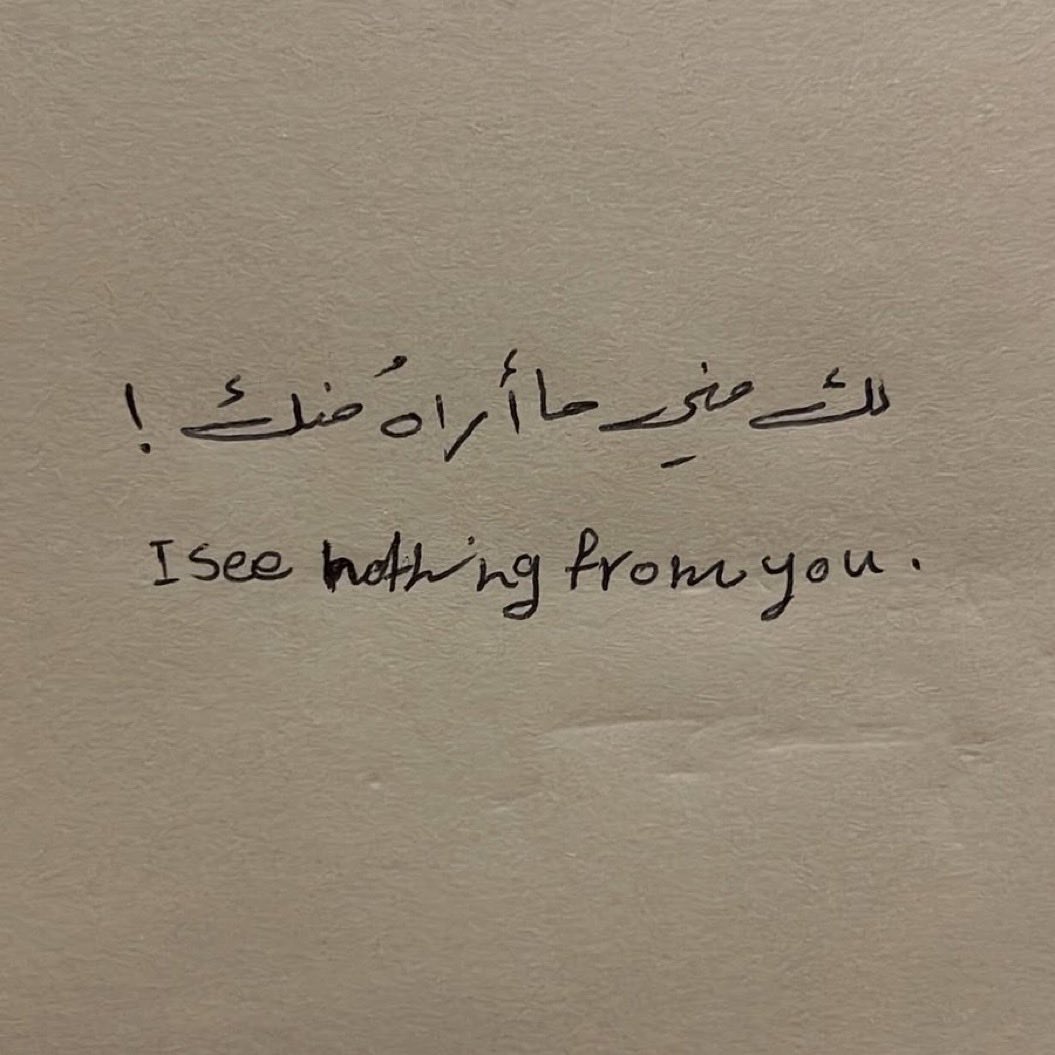 لك مني ما أراهُ منك !
I see nothing from you.